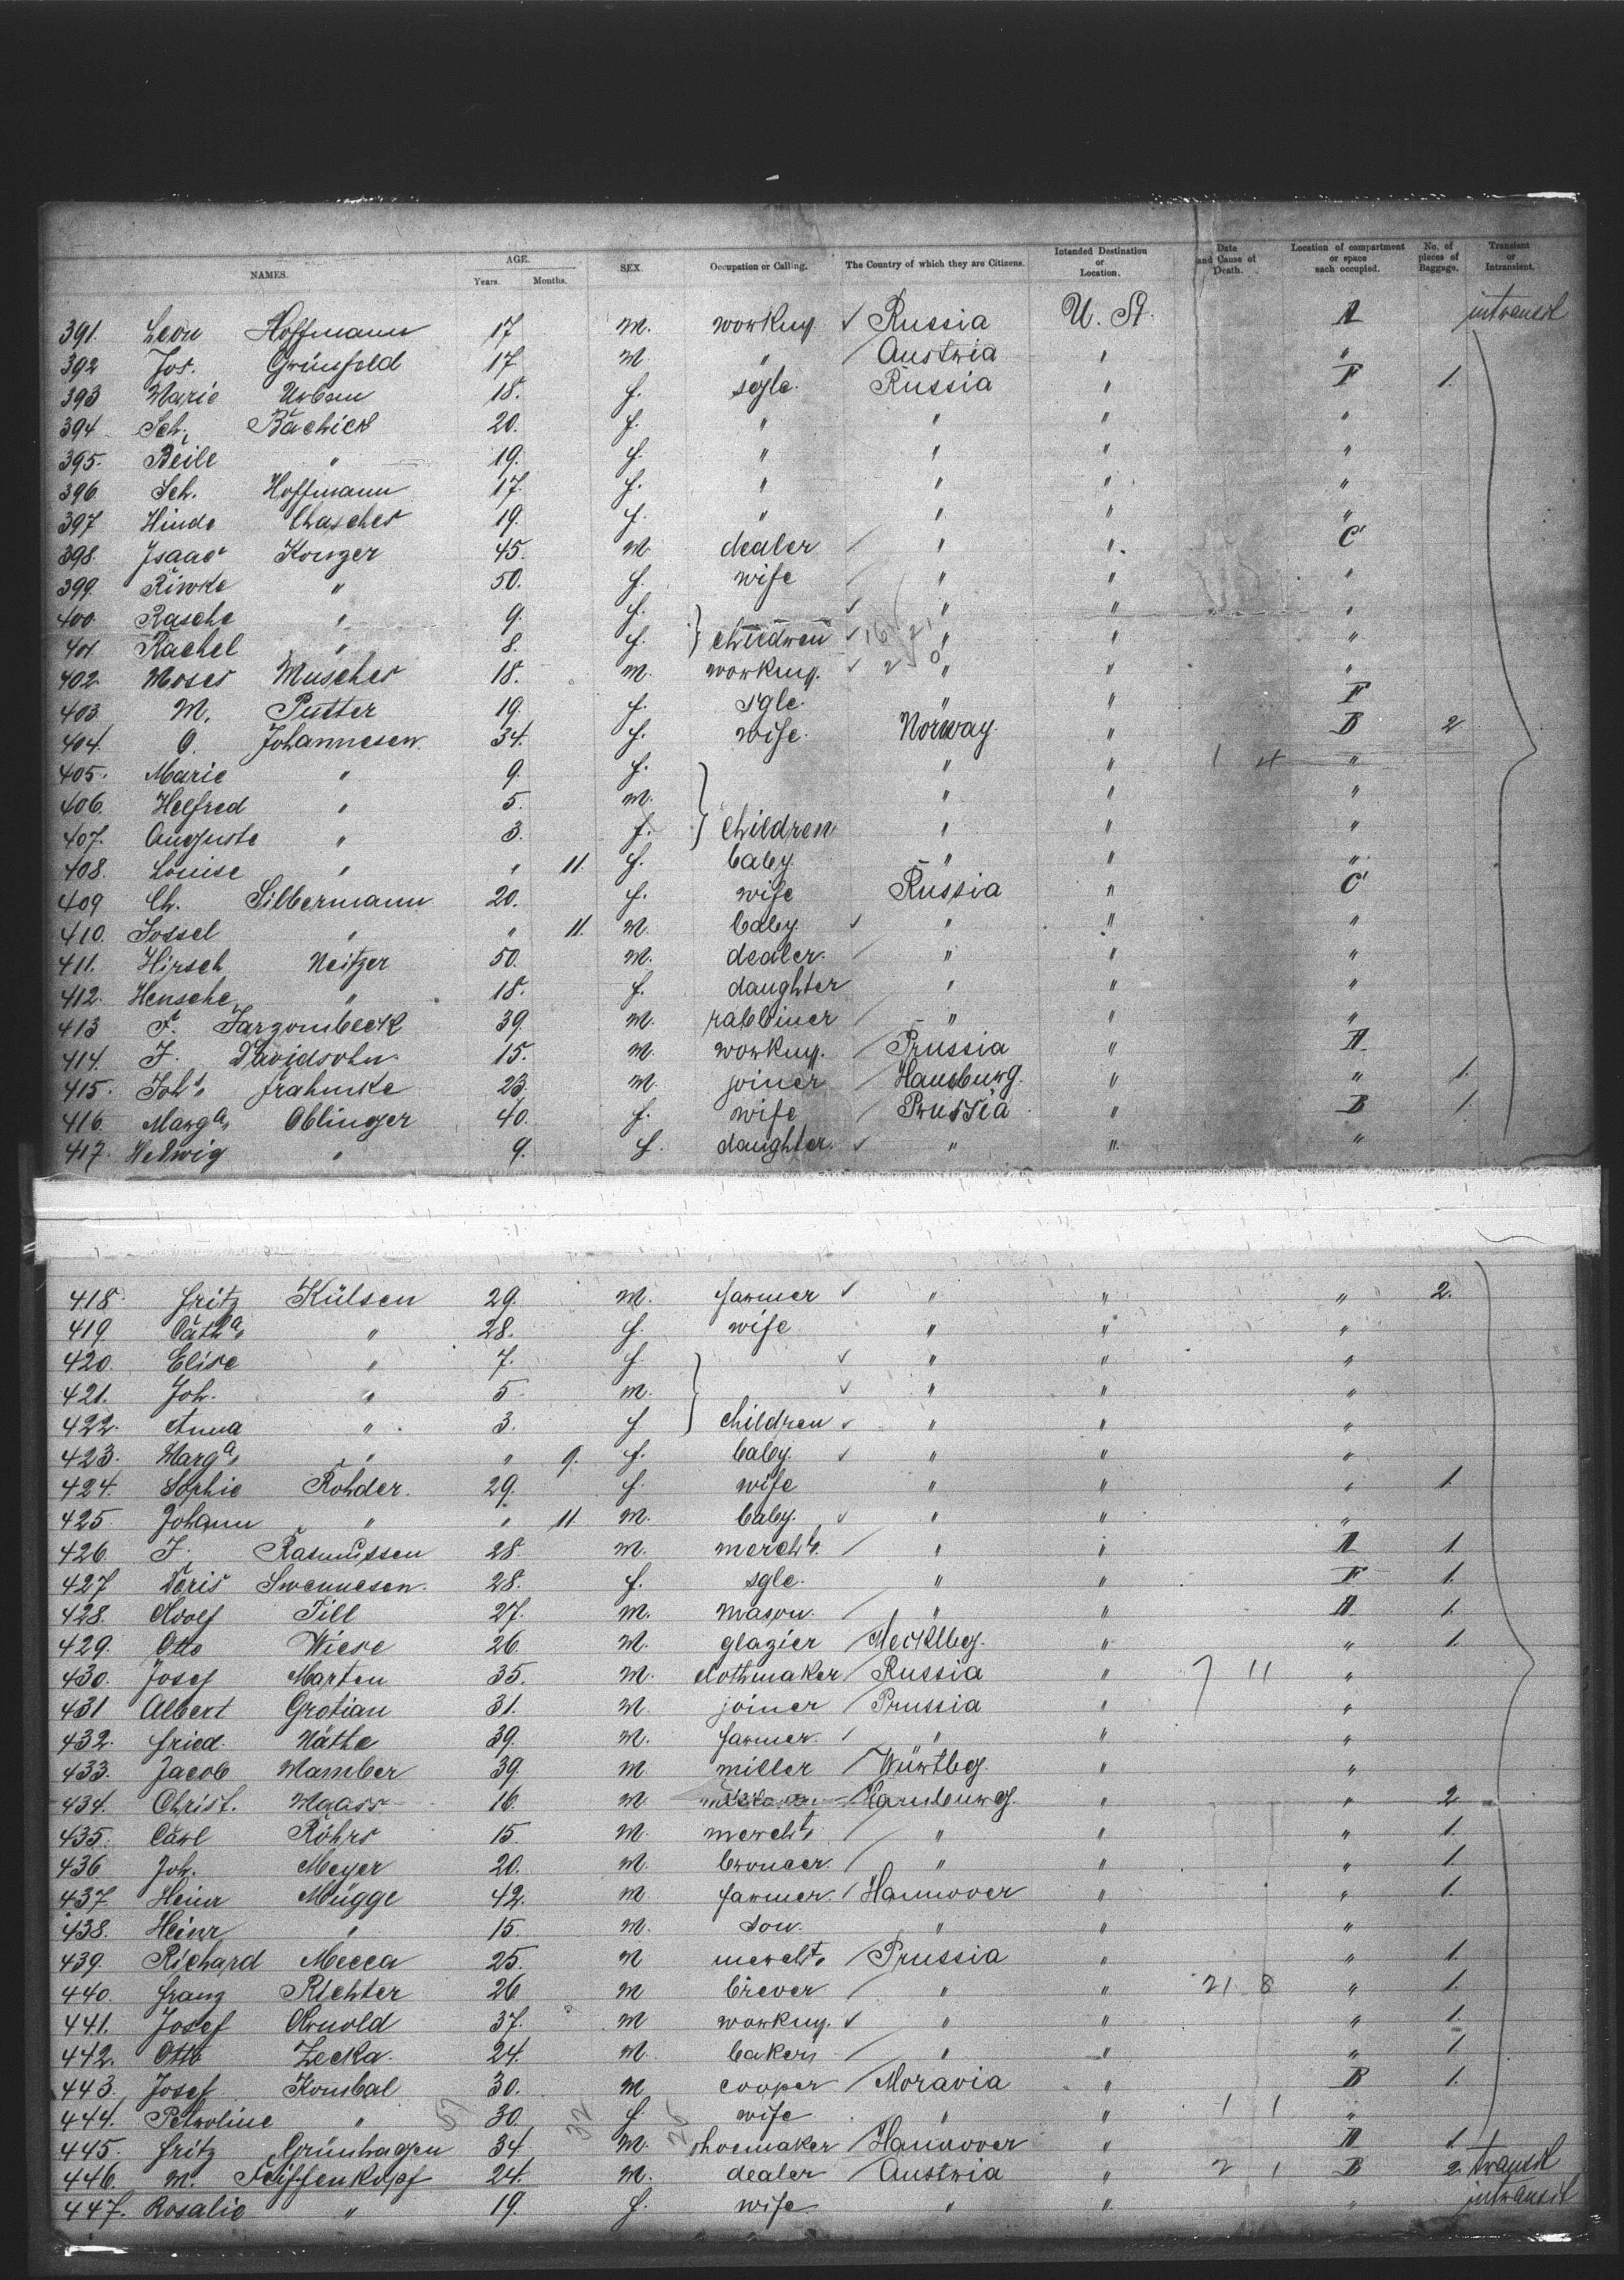 NAMES. AGE. Years. Months. SEX. Occupation or Calling. The Country of which they are Citizens. Intanded Destination or Location. Date and Cause of Death. Location of compartment or space each occupied. No. of pieces of Baggage. Transient or Intransient.
391. Leon Hoffmann 17 m. workmg. ✓ Russia U. St. A intransit
392 Jos. Grünfeld 17 m. " / Austria " "
393 Marie Urban 18. f. sgle. Russia " F 1.
394. Sch. 20. f. " " " "
395. Beile " 19. f. " " " "
396. Sch. Hoffmann 17. f. " " " "
397 Hinde Chascher 19. f. " " " "
398. Isaac Konger 45. m dealer / " " C
399. Riwke " 50. f. wife / " " "
400. Rasche " 9. f. ✓ " " "
401 Rachel " 8. f. } children ✓ " " "
402. Moses Muscher 18. m. workmg. ✓ " " "
403. M. Putter 19. f. sgle. " " F
404. O. Johannesen 34. f. wife. Norway. " B 2
405. Marie " 9. f. " " 1 4 "
406. Helfred " 5. m. " " "
407. Auguste " 3. f. } children " " "
408. Louise " " 11. f. baby. " " "
409 Ch. Silbermann 20. f. wife Russia " C
410. Jossel " " 11. m. baby. ✓ " " "
411. Hirsch Neitzer 50. m. dealer. / " " "
412. Hensche " 18. f. daughter / " " "
413 F. Jargombeck 39. m. rabbiner / " " "
414. J. Davidsohn 15. m. workmg. / Prussia " A
415. Joh. Frahmke 23. m. joiner / Hamburg. " " 1.
416. Marg<sup>a</sup>. Oblinger 40. f. wife / Prussia " B 1.
417. Hedwig " 9. f. daughter. ✓ " " "
418. Fritz Külsen 29. m. farmer ✓ " " " 2.
419. Cath<sup>a</sup>. " 28. f. wife " " "
420. Elise " 7. f. ✓ " " "
421. Joh. " 5 m. ✓ " " "
422. Anna " 3. f } children ✓ " " "
423. Marg<sup>a</sup>. " " 9. f. baby. ✓ " " "
424. Sophie Rohder. 29. f. wife " " " 1.
425. Johann " " 11. m. baby. ✓ " " "
426. J. Rasmussen 28. m. mercht. / " " A 1.
427 Doris Swennesen. 28. f. sgle. " " F 1.
428. Adolf Till 27. m. mason. / " " A 1.
429. Otto Wiese 26. m. glazier / Mecklbg. " " 1.
430. Josef Marten 35. m. clothmaker / Russia " 7 11 "
431 Albert Grotian 31. m joiner / Prussia " "
432. Fried. Näthe 39. m. farmer. / " " "
433. Jacob Mamber 39. m miller / Würtbg. " "
434. Christ. Maass 16. m Hamburg. " " 2
435. Carl Röhrs 15. m. mercht. / " " " 1.
436 Joh. Meyer 20. m. / " " " 1.
437. Heinr Mügge 42. m farmer. / Hannover " " 1.
438. Heinr. " 15. m. son. " " "
439. Richard Mecca 25. m mercht. / Prussia " " 1.
440. Franz Richter 26 m brever / " " 21 8 " 1.
441. Josef Arnold 37. m workmg. ✓ " " " 1.
442. Otto Zecka. 24. m. baker / " " " 1
443. Josef Kombal 30. m cooper / Moravia " B 1.
444. Petroline " 30. f. wife " " 1 1 "
445. Fritz Grünhagen 34. m. shoemaker / Hannover " A 1.
446. M. Feiffenkopf 24. m. dealer / Austria " 2 1 B 2. transit
447. Rosalie " 19. f. wife " " " intransit